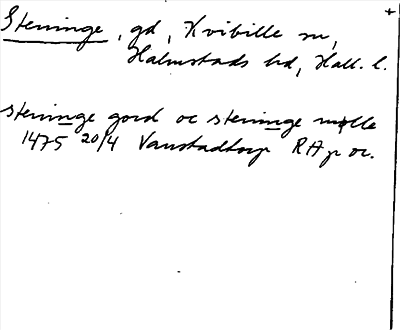 +
Steninge, gd, Kvibille sn,
Halmstads hd, Hall. l.
steninge gord oc steninge mølle
1475 20/4 Vanstadtorp RA p or.